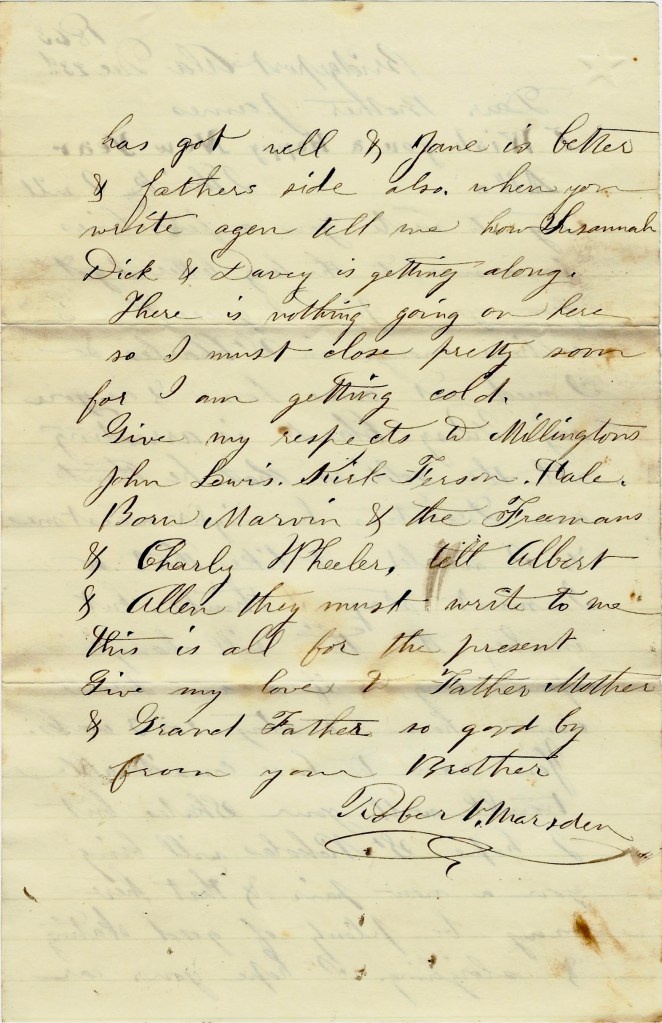 has got well & Jane is better
& fathers side also. when you
write agen tell me how Susannah
Dick & Davey is getting along.
There is nothing going on here
so I must close pretty soon
for I am getting cold.
Give my respects to Millingtons
John Lewis. Kirk Ferson. Hale.
Born Marvin & the Freemans
& Charly Wheeler, tell Albert
& Allen they must write to me
this is all for the present
Give my love to Father Mother
& Grand Father so good by
from your Brother
Robert Marsden